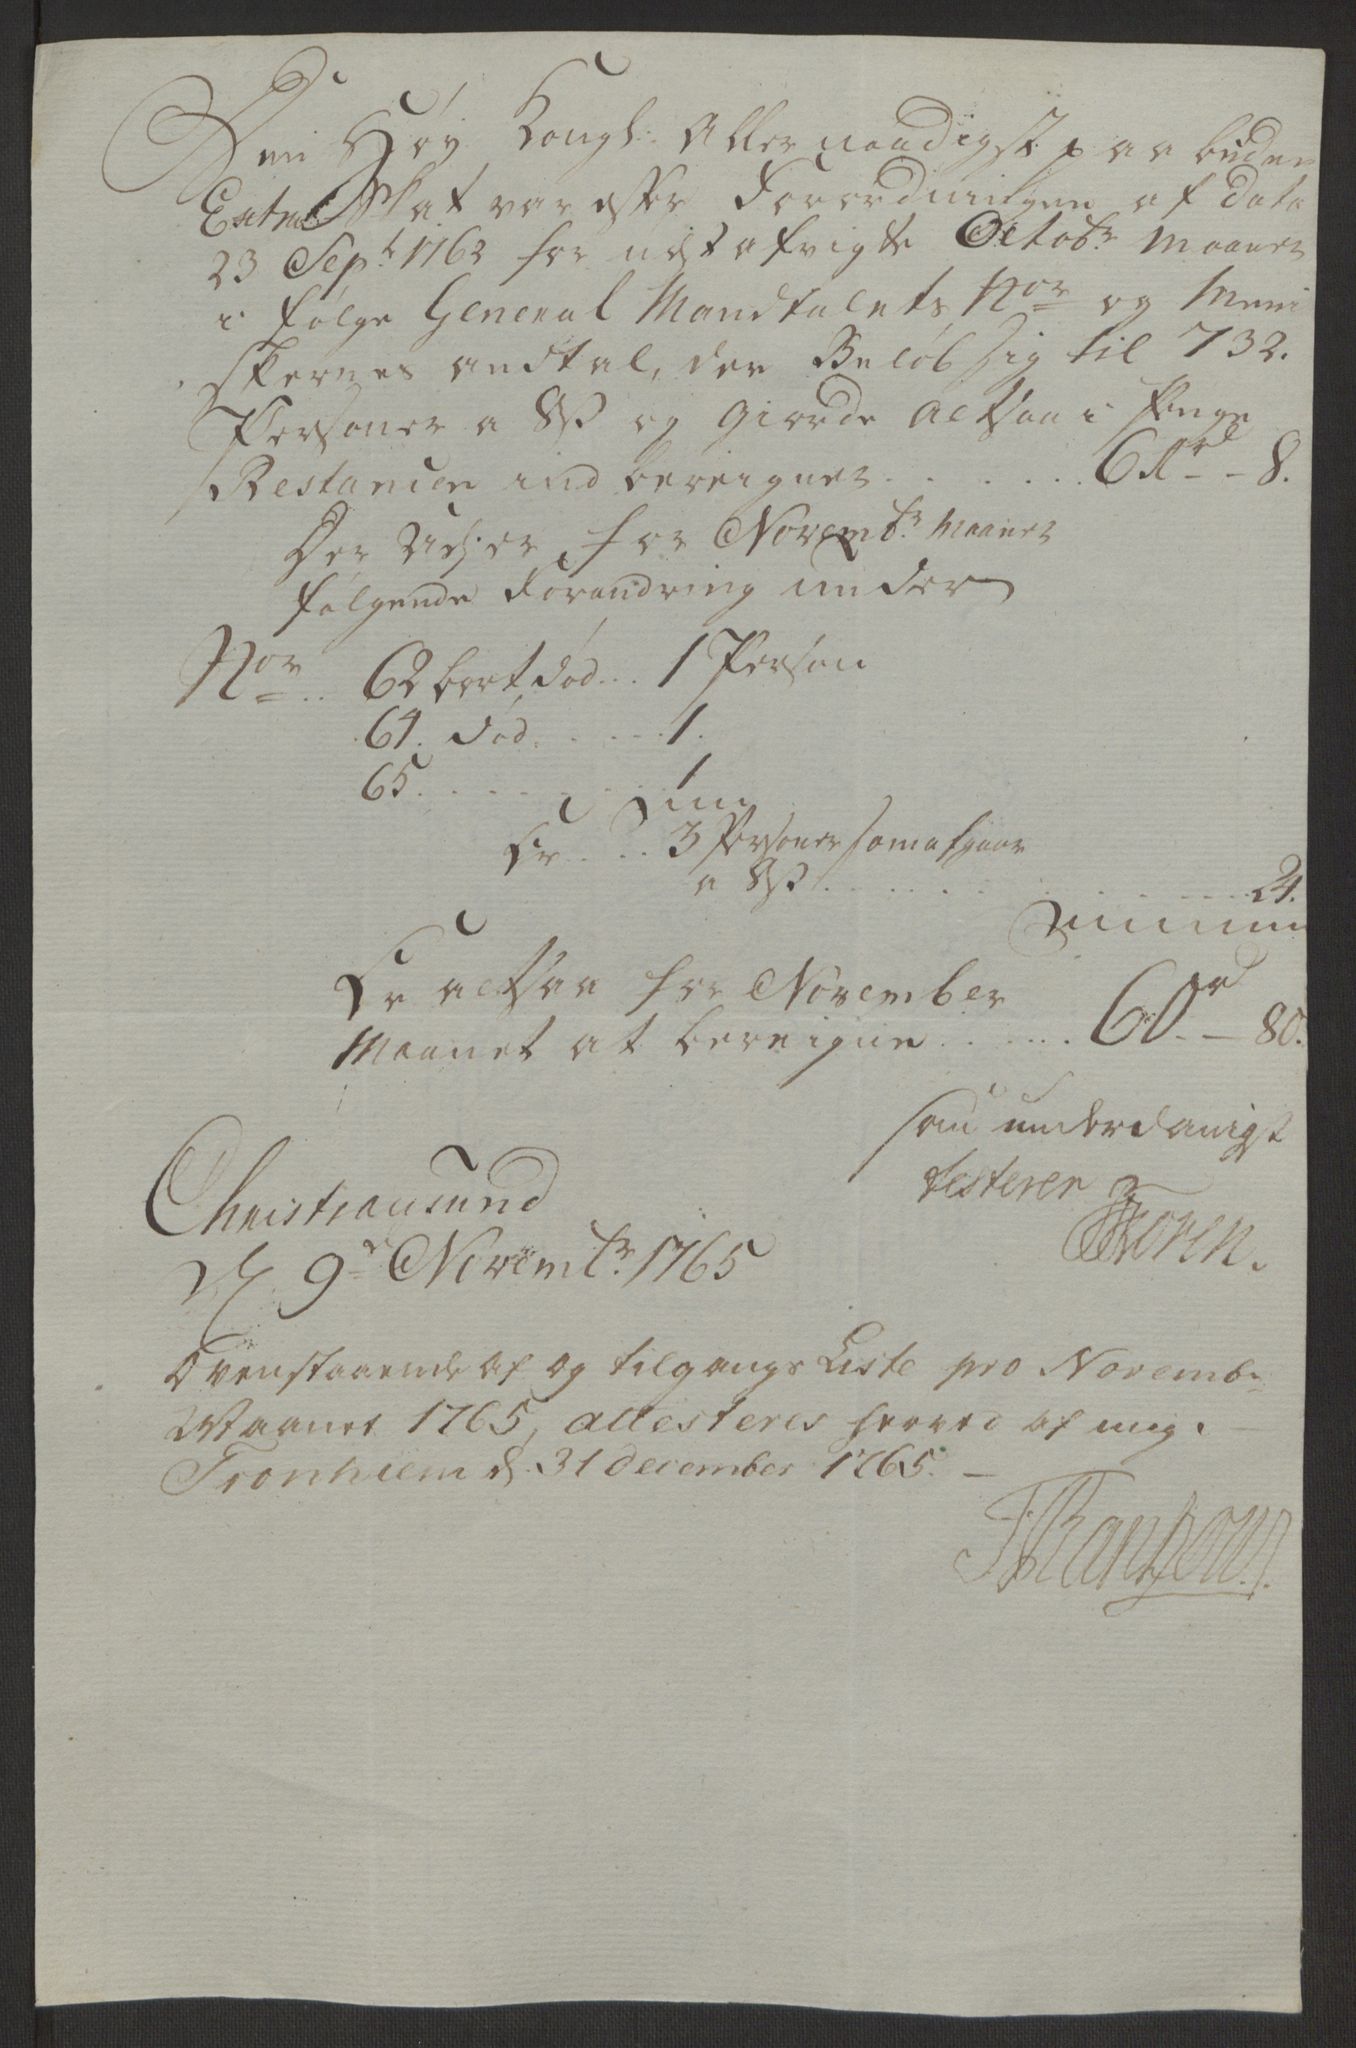 Den Höy Kongl: Allernaadigst paabudne
Extra Skat var efter Forordningen af Dato
23 Sept 1762 for nest afvigte Octobr Maaned
i følge General Mandtalets Nor og Menni
skernes andtal, der Beløb sig til 732.
Personer a 8 s og giorde altsaa i penge
Restancen indberegnet . . . . . . 61 rd - 8.
Der Udi er for Novembr Maaned
følgende Forandring under
Nor . . 62 bort død . . . 1 Person
64. død . . . . . 1.
65. . . . . . . . 1
Er . . . . 3 Personer som afgaar
a 8 s . . . . . . . . . . 24.
Er altsaa for November
Maanet at beregne . . . . . . 60 rd - 80.
som underdanigst
testerer
Christiansund
d 9de Novembr. 1765
Ovenstaaende af og tilgangs Liste pro Novembr
Maanet 1765, attesteres herved af mig.
Tronhiem d. 31 December 1765. -
Rantzou.